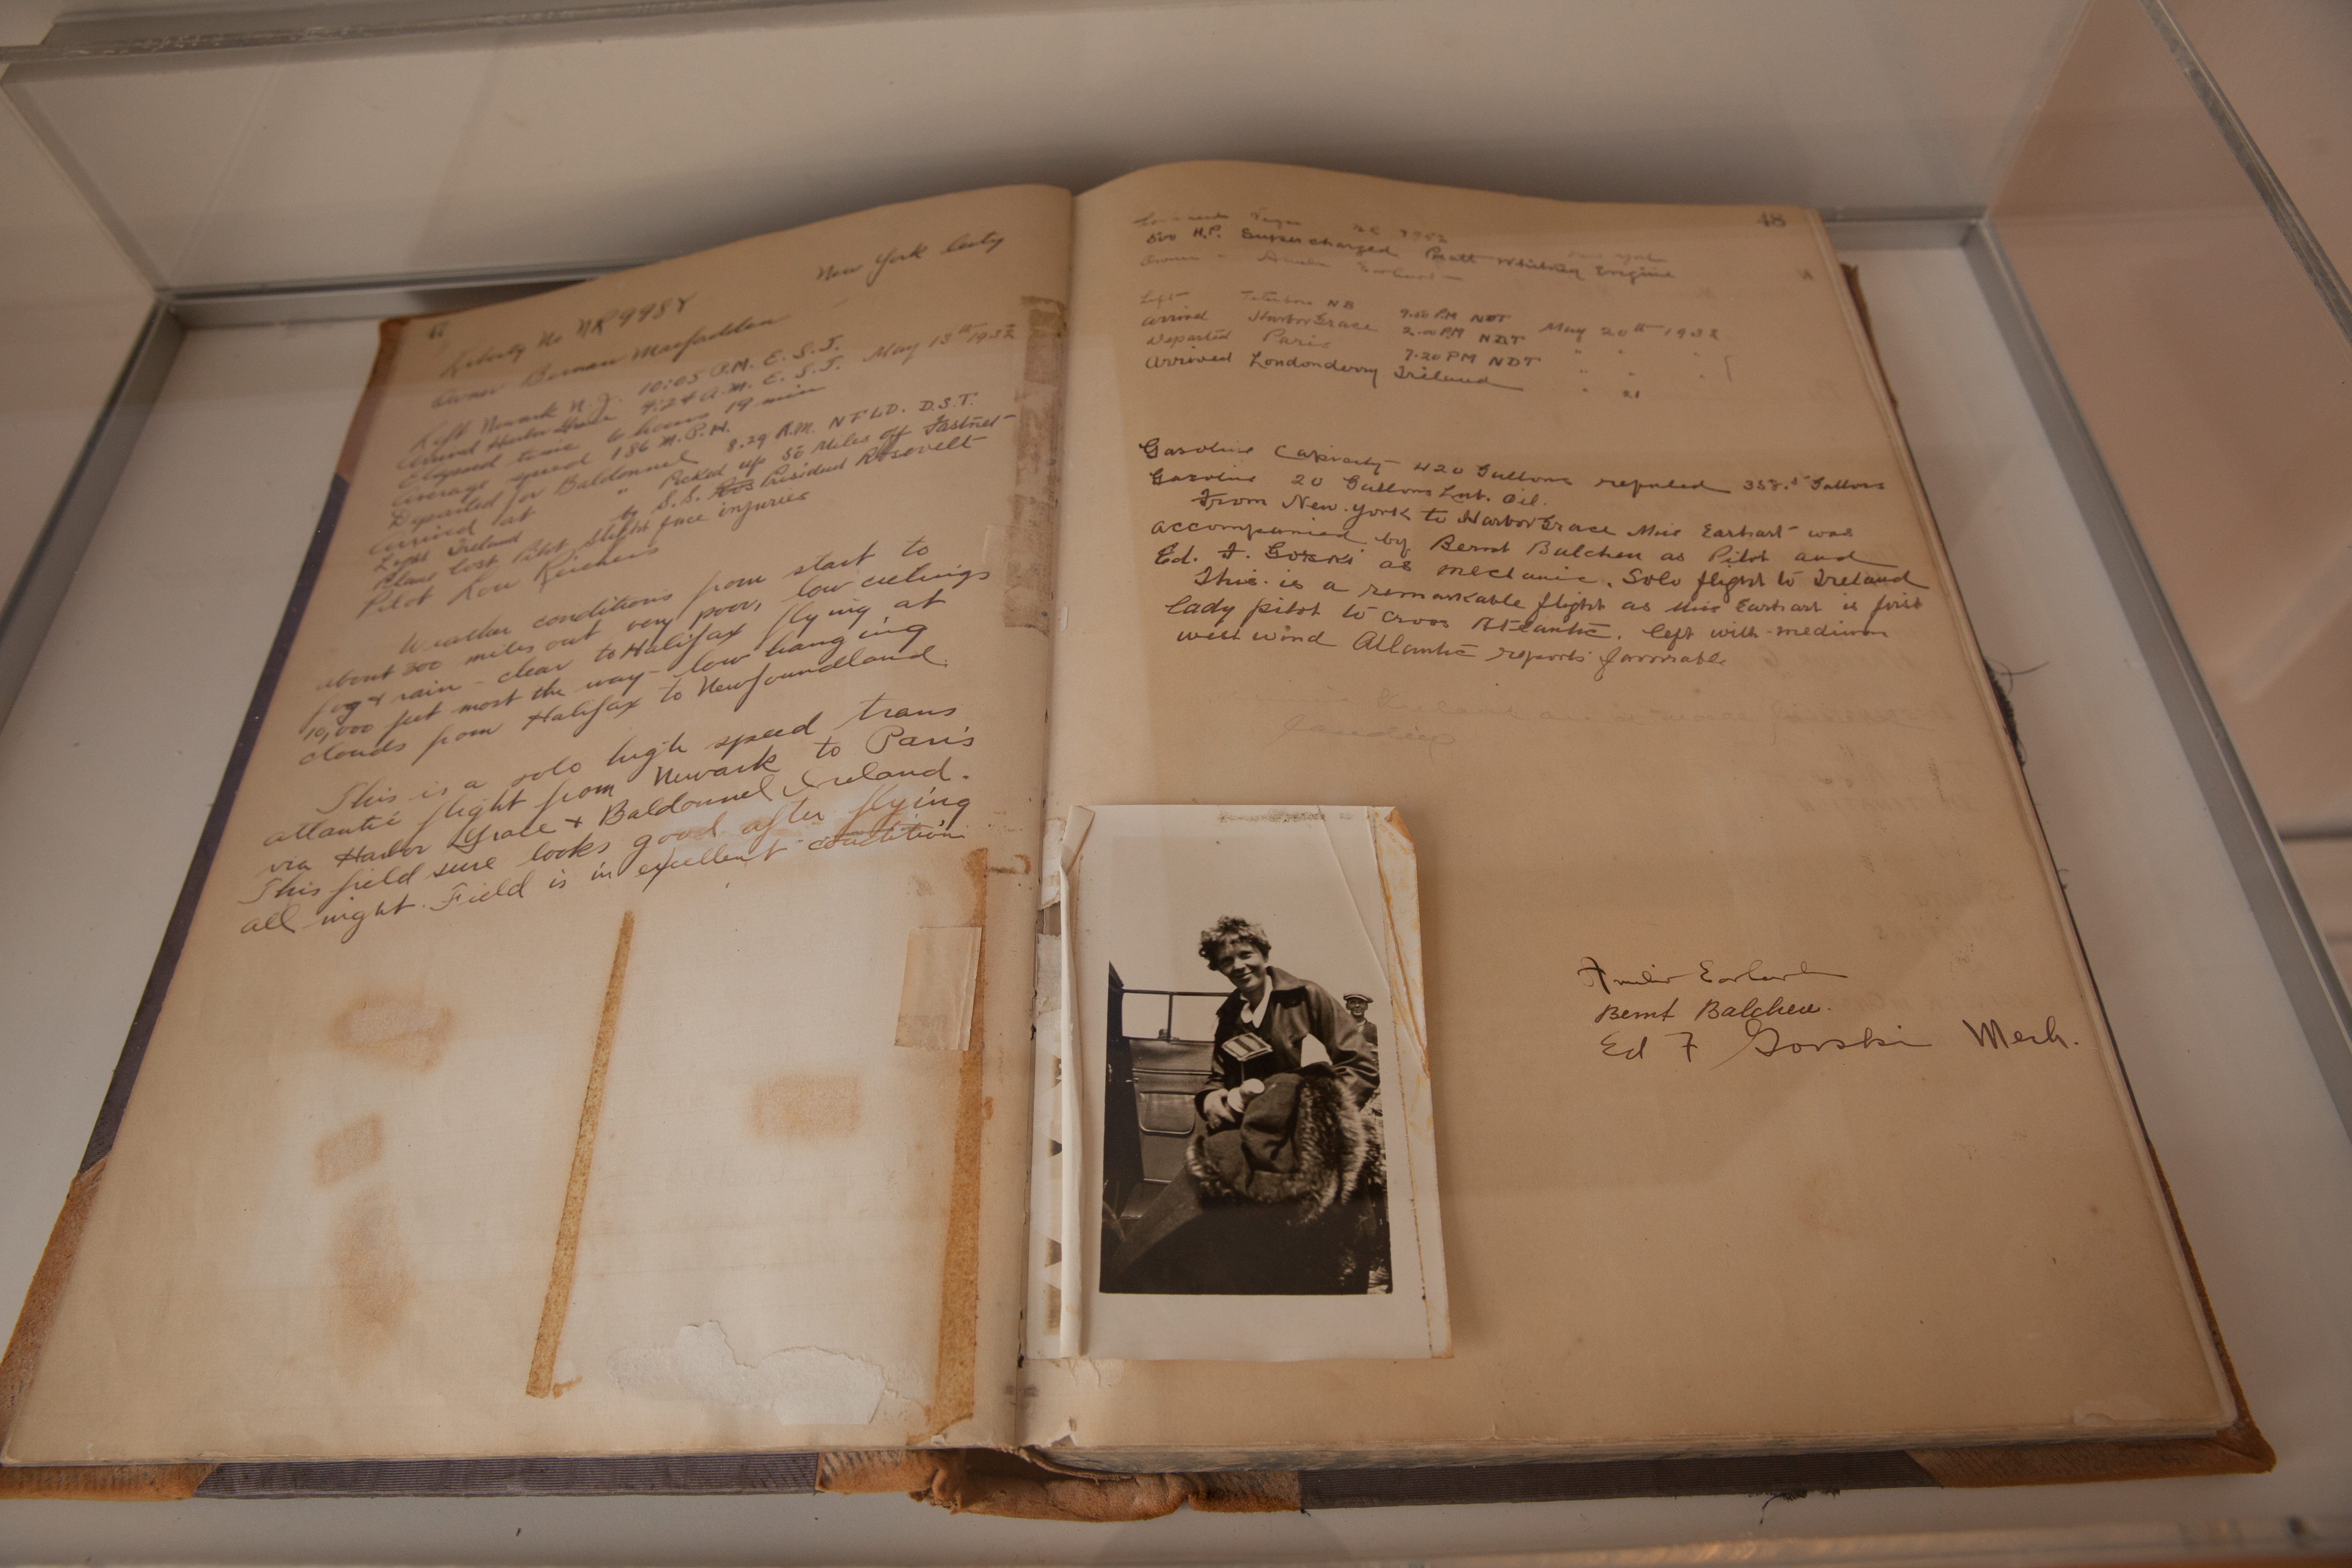 47
New York City
Liberty No NR998Y
Owner Bernarr Macfadden
Left Newark N.J. 10:05 P.M. E.S.T.
Arrived Harbor Grace 4:24 A.M. E.S.T. May 13th 1932
Elapsed time 6 hours 19 min
Average speed 186 M.P.H.
Departed for Baldonnel 8.29 A.M. NFLD. D.S.T.
Arrived at " Picked up 50 Miles off Fastnet
Light Ireland by S.S. President Rosevelt
Plane lost Pilot slight face injuries
Pilot Lou Reichers
Weather conditions from start to
about 300 miles out very poor, low ceilings
fog & rain - clear to Halifax flying at
10,000 feet most the way - low hanging
clouds from Halifax to Newfoundland.
This is a solo high speed trans
atlantic flight from Newark to Paris
via Harbor Grace & Baldonnel Ireland.
This field sure looks good after flying
all night. Field is in excellent condition
48
500 H.P. Supercharged Pratt Whitney Engine
Owner - Amelia Earhart -
Left Teterboro NB
Arrived HarborGrace 2.00 PM NDT May 20th 1932
Departed Paris 7.20 PM NDT " " "
Arrived Londonderry Ireland " " 21
Gasoline Capacity 420 Gallons refueled Gallons
Gasoline 20 Gallons Lub. Oil.
From New York to HarborGrace Miss Earhart was
accompanied by Bernt Balchen as Pilot and
Ed. F. Gorski as mechanic. Solo flight to Ireland
This is a remarkable flight as Miss Earhart is first
lady pilot to cross Atlantic. left with medium
west wind Atlantic reports favorable
Amelia Earhart
Bernt Balchen.
Ed F Gorski Mech.